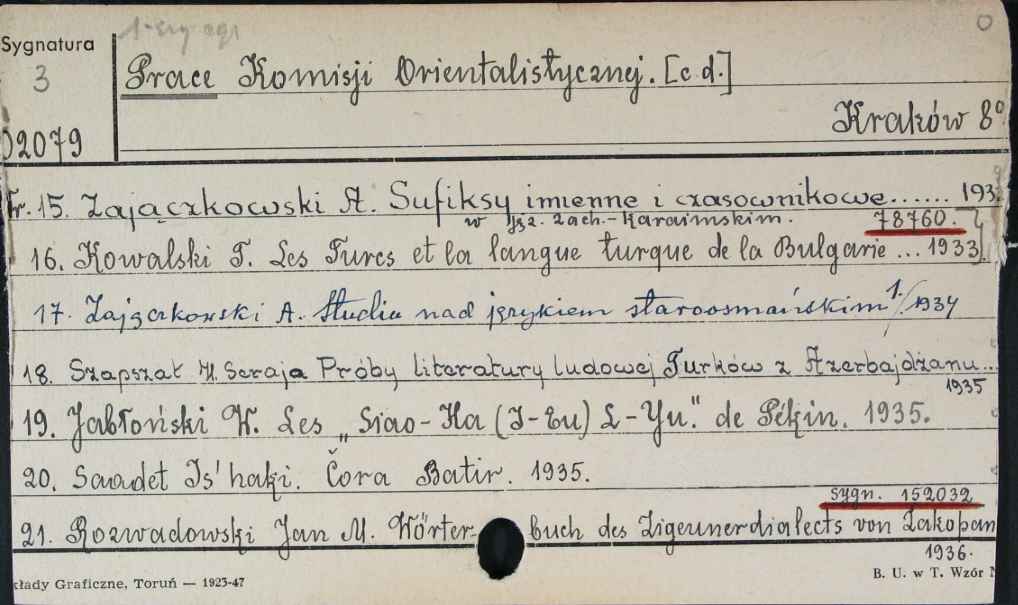 Sygnatura
3
02079
Prace Komisji Orientalistycznej. [c.d.]
Kraków 8°
Nr. 15. Zajączkowski A. Sufiksy imienne i czasownikowe....... 193
w jęz. zach.-Karaimskim. 78760.
16. Kowalski T. Les Turcs et la langue turque de la Bulgarie ... 1933
17. Zajączkowski A. Studia nad językiem staroosmańskim 1./1934
18. Szapszał H. Seraja Próby literatury ludowej Turków z Azerbajdżanu...
1935
19. Jabłoński W. Les „Siao-Ha (I-Eu) L-Yu." de Pékin. 1935.
20. Saadet Is'haki. Čora Batir. 1935.
sygn. 152032
21. Rozwadowski Jan M. Wörter- buch des Zigeunerdialects von Zakopan
1936.
kłady Graficzne, Toruń — 1925-47
B. U. w T. Wzór N